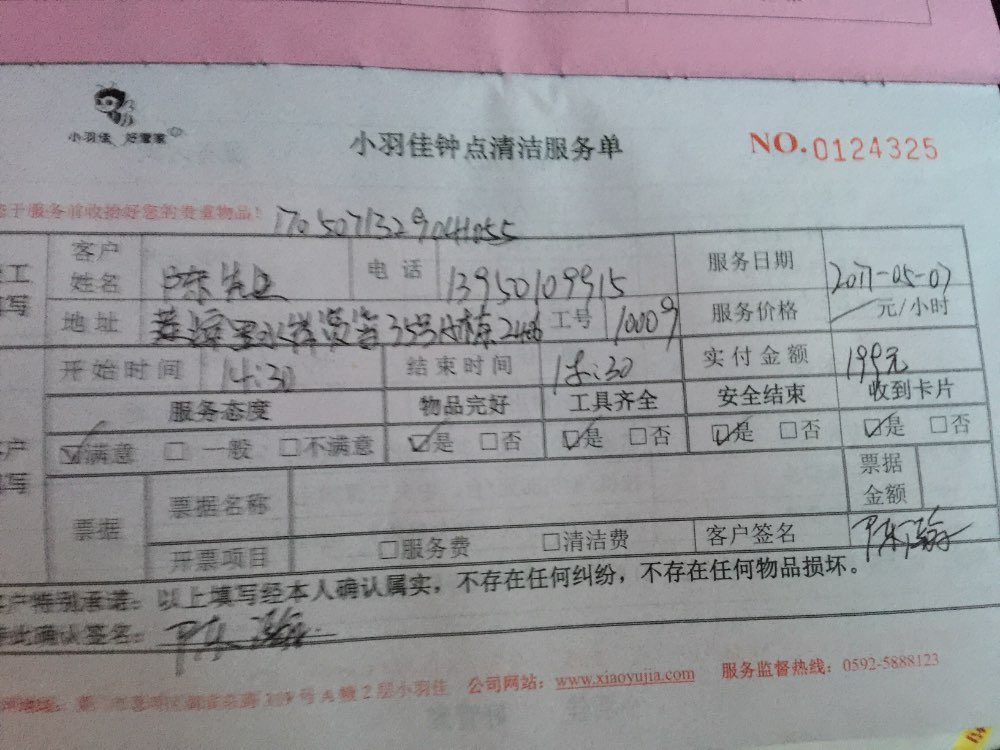 小羽佳 好管家
小羽佳钟点清洁服务单
NO.0124325
于服务前收拾好您的贵重物品!
1705071329041055
工 客户姓名 陈先生 电话 13950109915 服务日期 2017-05-07
填写 地址 35号 工号 10009 服务价格 元/小时
开始时间 14:30 结束时间 18:30 实付金额 199元
服务态度 物品完好 工具齐全 安全结束 收到卡片
户 ☑满意 □一般 □不满意 ☑是 □否 ☑是 □否 ☑是 □否 ☑是 □否
填写 票据 票据名称 票据金额
开票项目 □服务费 □清洁费 客户签名 陈瀚
客户特别承诺:以上填写经本人确认属实,不存在任何纠纷,不存在任何物品损坏。
特此确认签名:陈瀚
号A幢2层小羽佳 公司网站:www.xiaoyujia.com 服务监督热线:0592-5888123